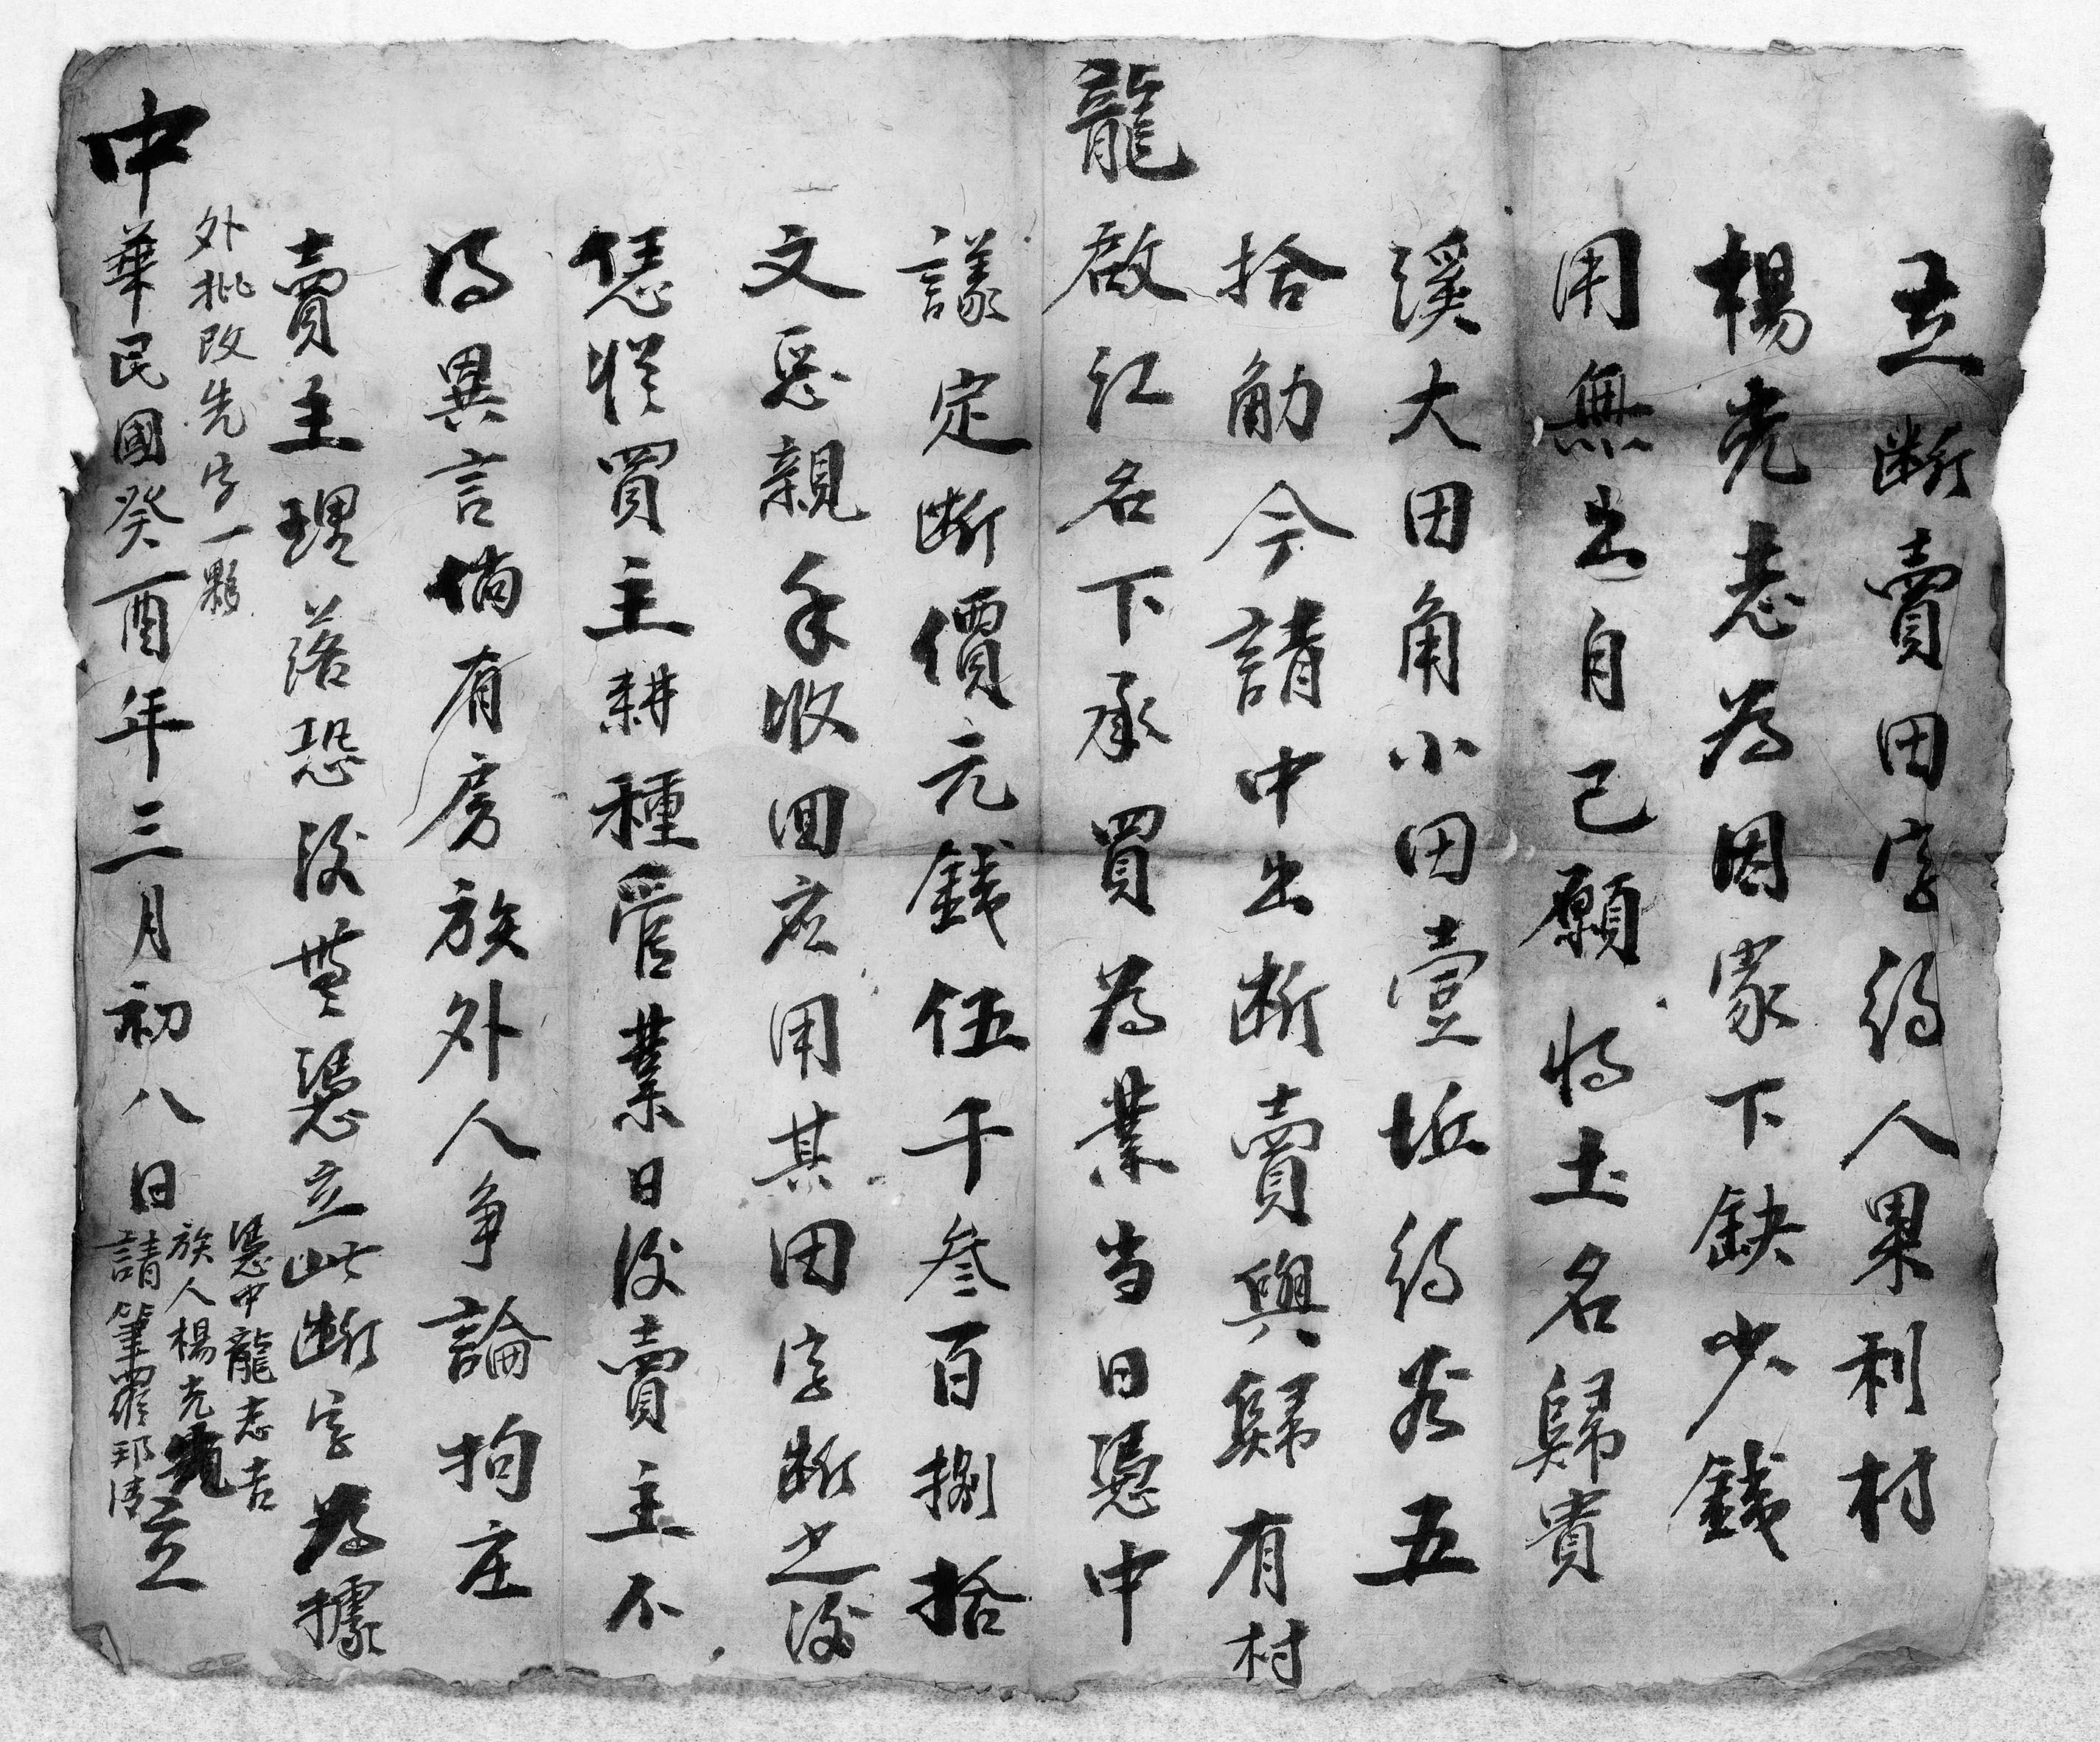 立断賣田字約人果利村
楊光志為因家下缺少錢
用無出自己願将土名歸貴
溪大田角小田壹坵約谷五
拾觔今請中出断賣與歸有村
龍啟江名下承買為業当日憑中
議定断價元錢伍千叁百捌拾
文恶親手收回应用其田字断之後
恁従買主耕種管業日後賣主不
得異言倘有房族外人争論拘庄
賣主理落恐後無憑立此断字為據
外批改先字一颗
憑中龍志吉
族人楊光
請筆 邦清
中華民國癸酉年三月初八日 立